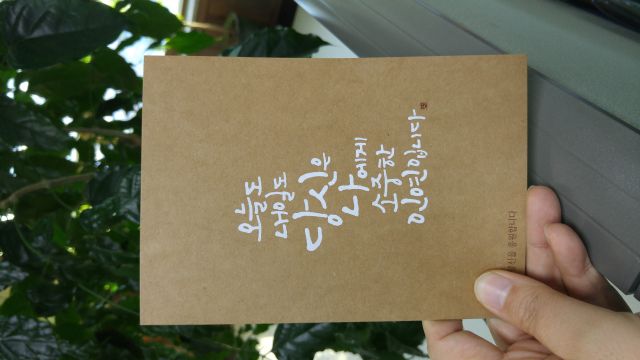 오늘도
내일도
당신은
나에게
소중한
인연입니다